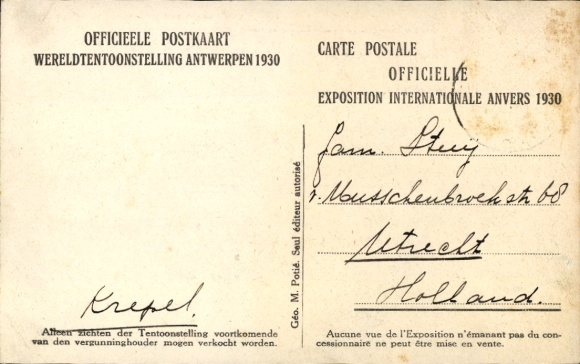 OFFICIEELE POSTKAART
WERELDTENTOONSTELLING ANTWERPEN 1930
Krepel.
Alleen zichten der Tentoonstelling voortkomende
van den vergunninghouder mogen verkocht worden.
Géo. M. Potié. Seul éditeur autorisé
CARTE POSTALE
OFFICIELLE
EXPOSITION INTERNATIONALE ANVERS 1930
Fam. Stuij
v. Musschenbroekstr 68
Utrecht
Holland.
Aucune vue de l'Exposition n'émanant pas du con-
cessionnaire ne peut être mise en vente.